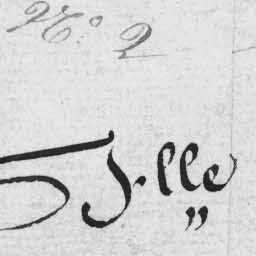 N.º 2
J.lle
"